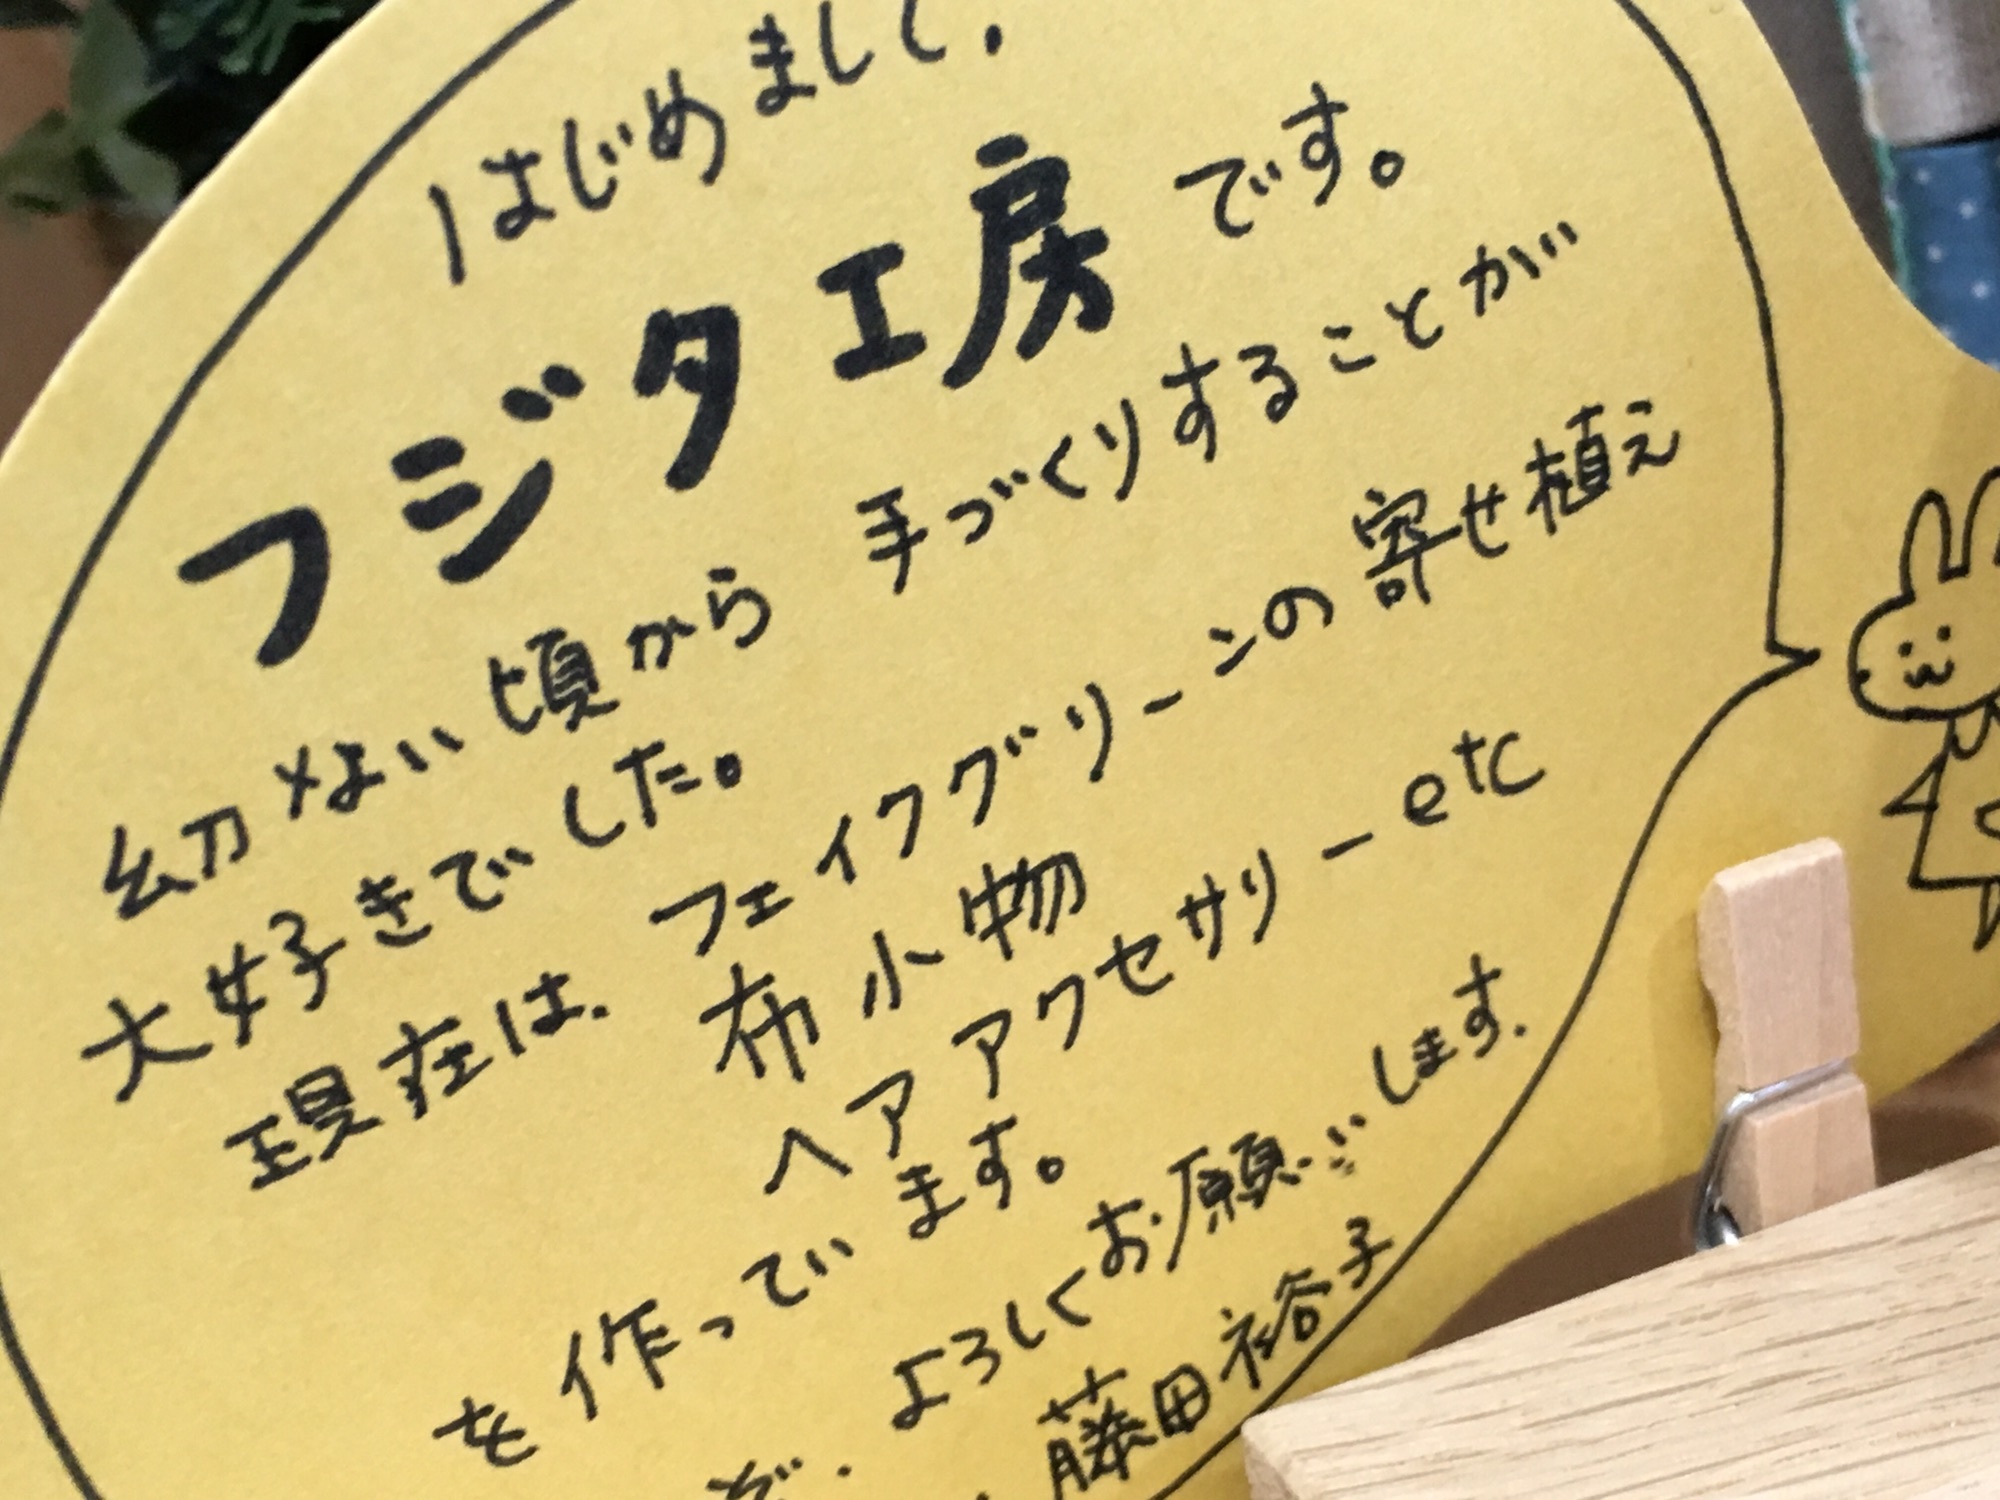 はじめまして.
フジタ工房です。
幼ない頃から 手づくりすることが
大好きでした。
現在は. フェイクグリーンの寄せ植え
布小物
ヘアアクセサリー etc
を作っています。
ぞ. よろしくお願いします.
藤田裕子